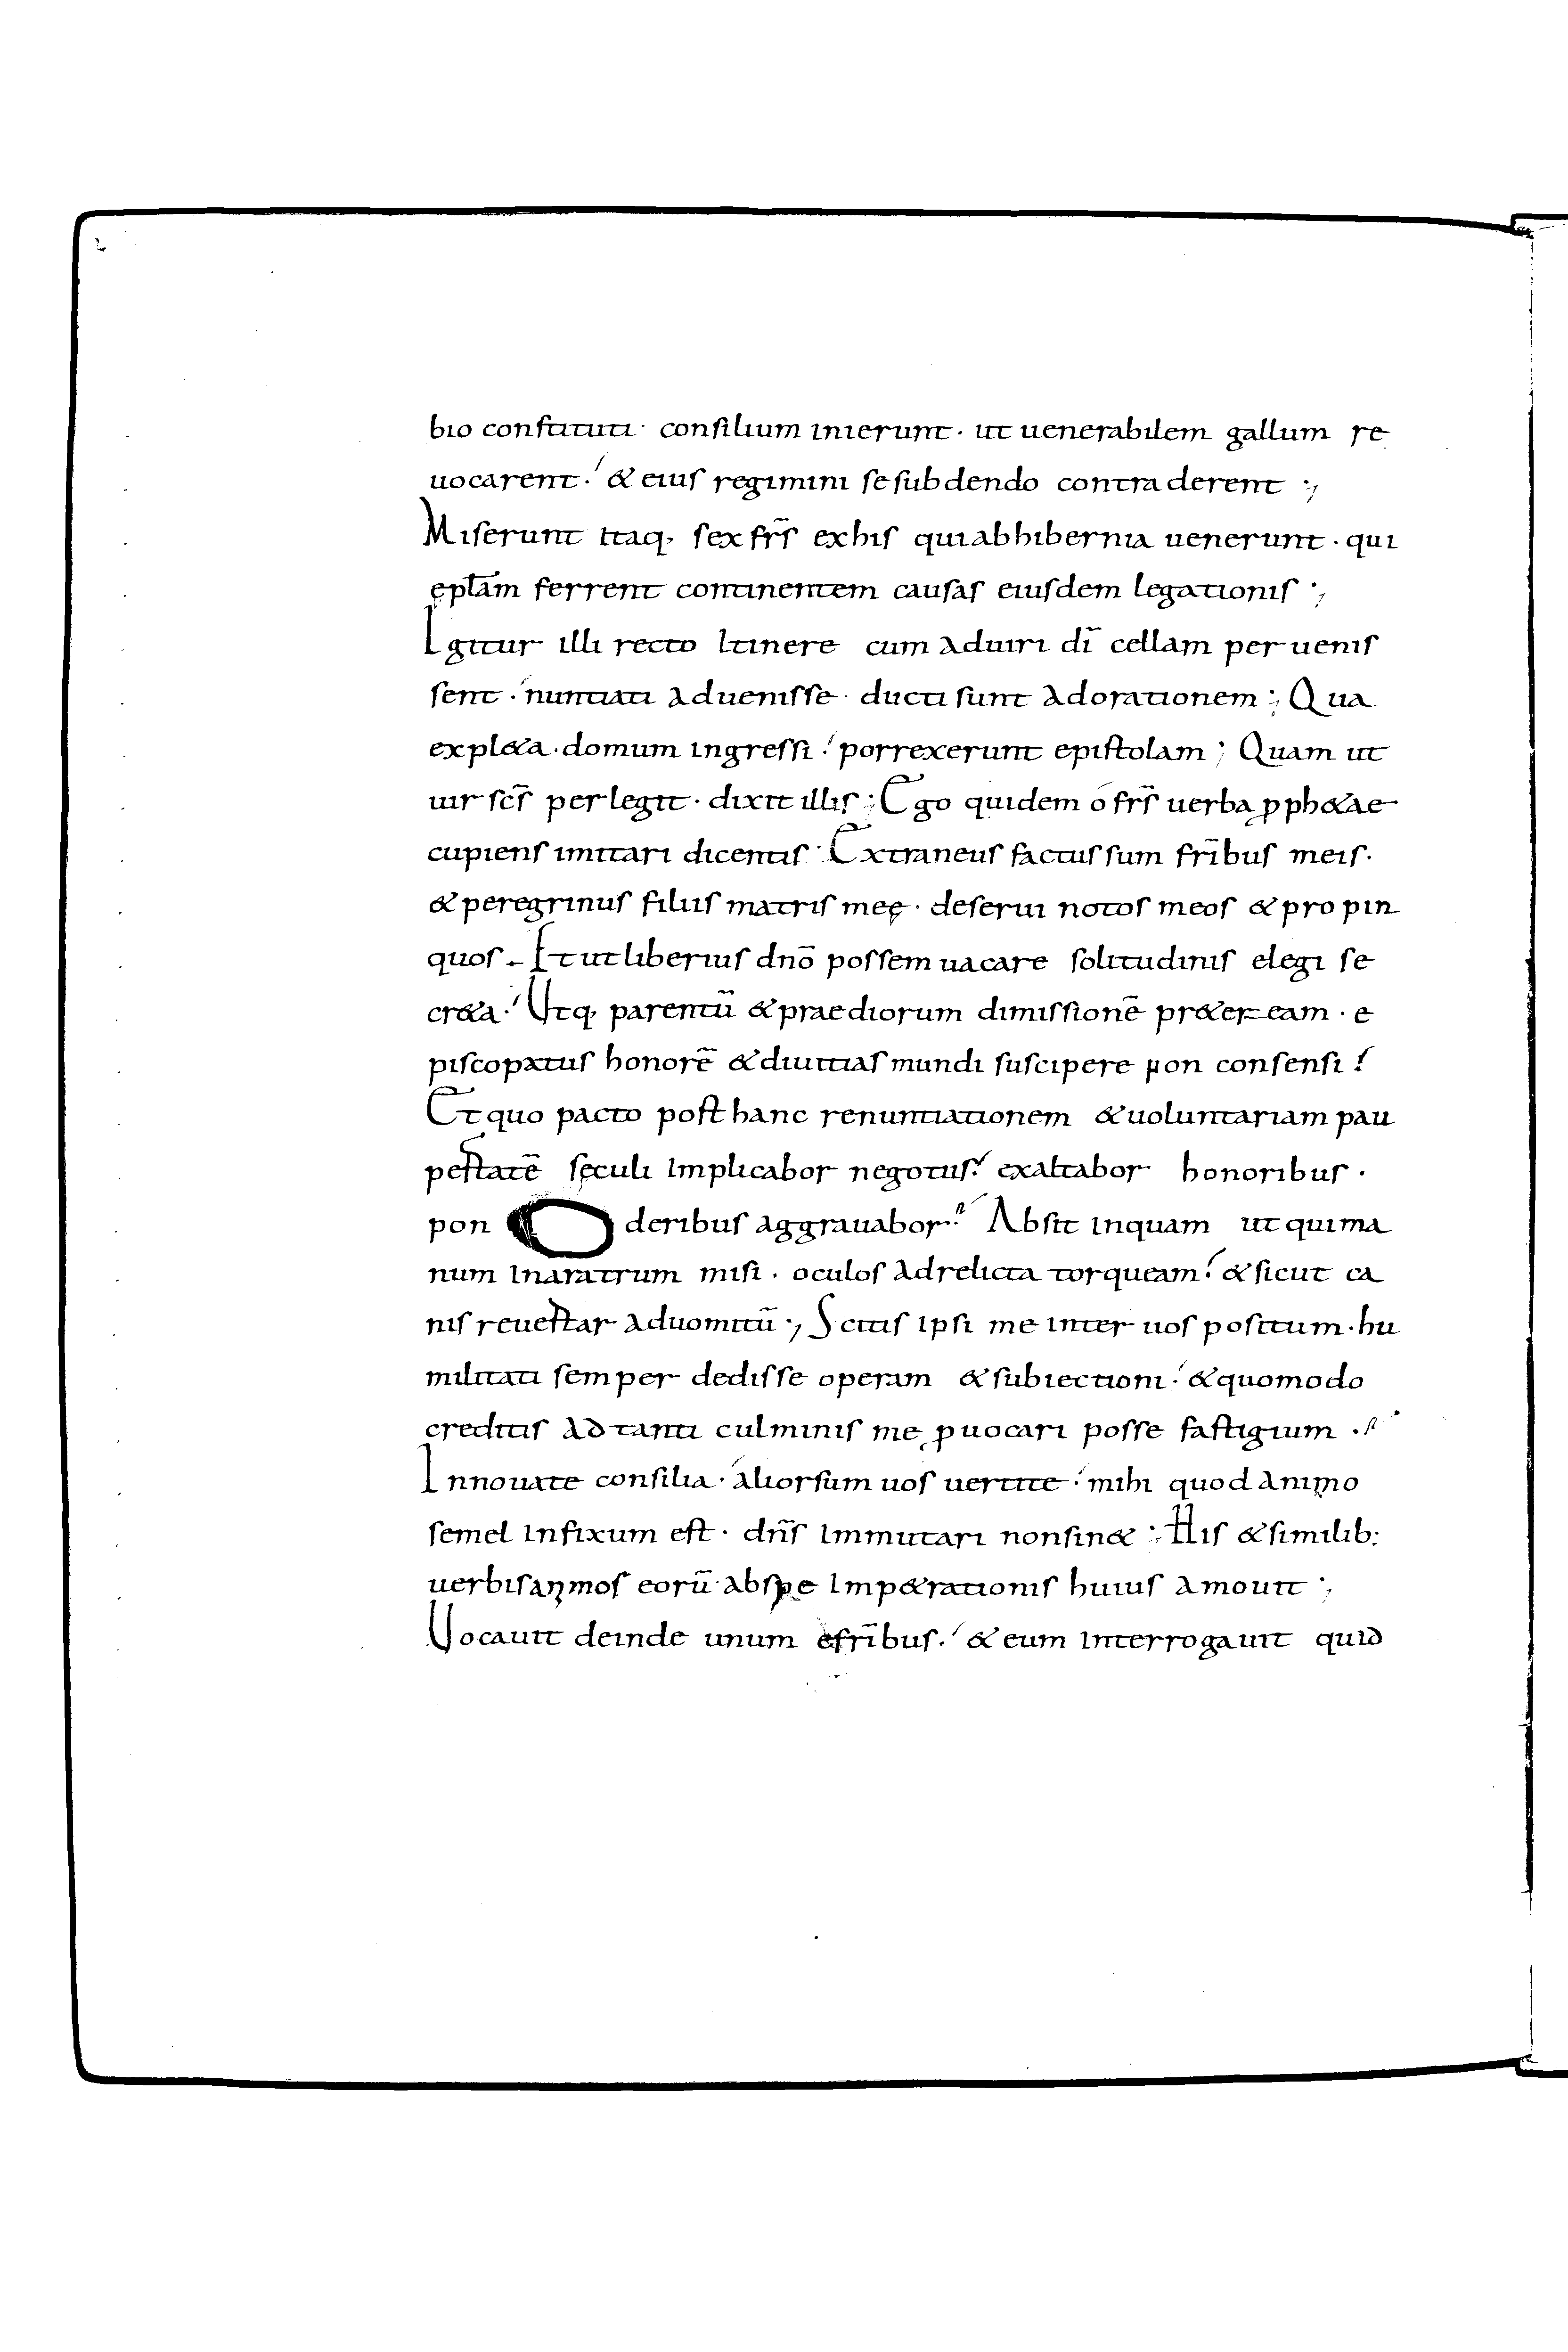 bio constituti · consilium inierunt · ut uenerabilem gallum re
uocarent · & eius regimini se subdendo contraderent ·,
Miserunt itaq, sex fr̄s ex his qui ab hibernia uenerunt · qui
ępłam ferrent continentem causas eiusdem legationis ·,
Igitur illi recto itinere cum ad uiri dī cellam peruenis
sent · nuntiati aduenisse · ducti sunt ad orationem ; Qua
expl&a · domum ingressi · porrexerunt epistolam ; Quam ut
uir sc̄s perlegit · dixit illis ; Ego quidem ó fr̄s uerba ꝓph&ae
cupiens imitari dicentis · Extraneus factus sum fr̄ibus meis ·
& peregrinus filiis matris meę · deserui notos meos & propin
quos · Et ut liberius dnō possem uacare solitudinis elegi se
cr&a · Utq, parentū & praediorum dimissionē pr&eream · e
piscopatus honorē & diuitias mundi suscipere non consensi ·
Et quo pacto post hanc renuntiationem & uoluntariam pau
pertatē sęculi implicabor negotiis · exaltabor honoribus ·
pon deribus aggrauabor · Absit inquam ut qui ma
num in aratrum misi · oculos ad relicta torqueam · & sicut ca
nis reuertar ad uomitū ·, Scitis ipsi me inter uos positum · hu
militati semper dedisse operam & subiectioni · & quomodo
creditis ad tanti culminis me ꝓuocari posse fastigium ·
Innouate consilia · aliorsum uos uertite · mihi quod animo
semel infixum est · dn̄s immutari non sin& ; His & similib:
uerbis animos eorū · ab spe imp&rationis huius amouit ·,
Uocauit deinde unum e fr̄ibus · & eum interrogauit quid